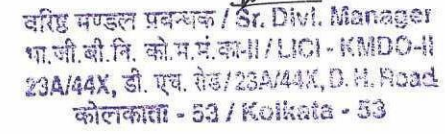 वरिष्ठ मण्डल प्रबन्धक / Sr. Divl. Manager
भा.जी.बी.नि. को.म.मं.का-II / LICI - KMDO-II
23A/44X, डी. एच. रोड / 23A/44X, D. H. Road
कोलकाता - 53 / Kolkata - 53